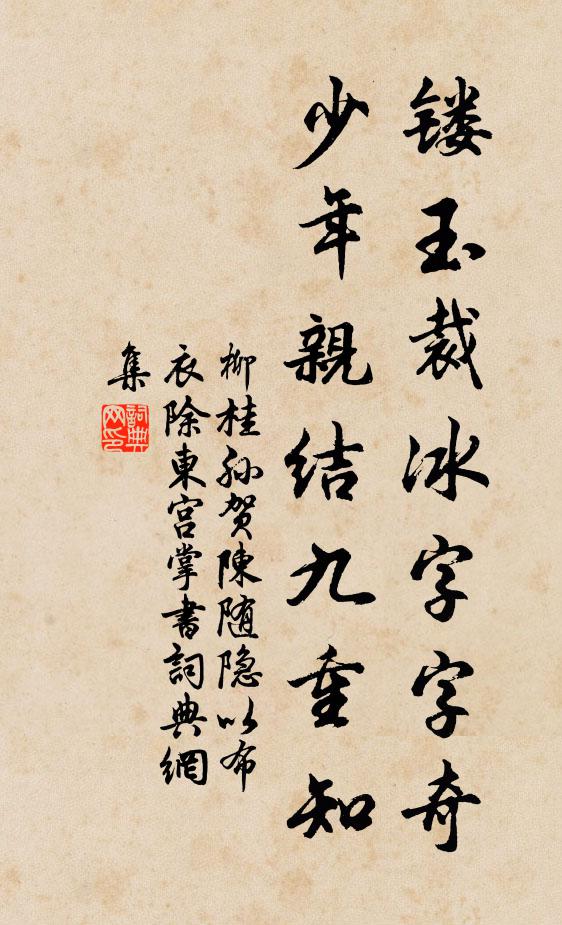 镂玉裁冰字字奇
少年親結九重知
柳桂孙贺陳随隐以布
衣除東宫掌書詞典網
集
詞典网印